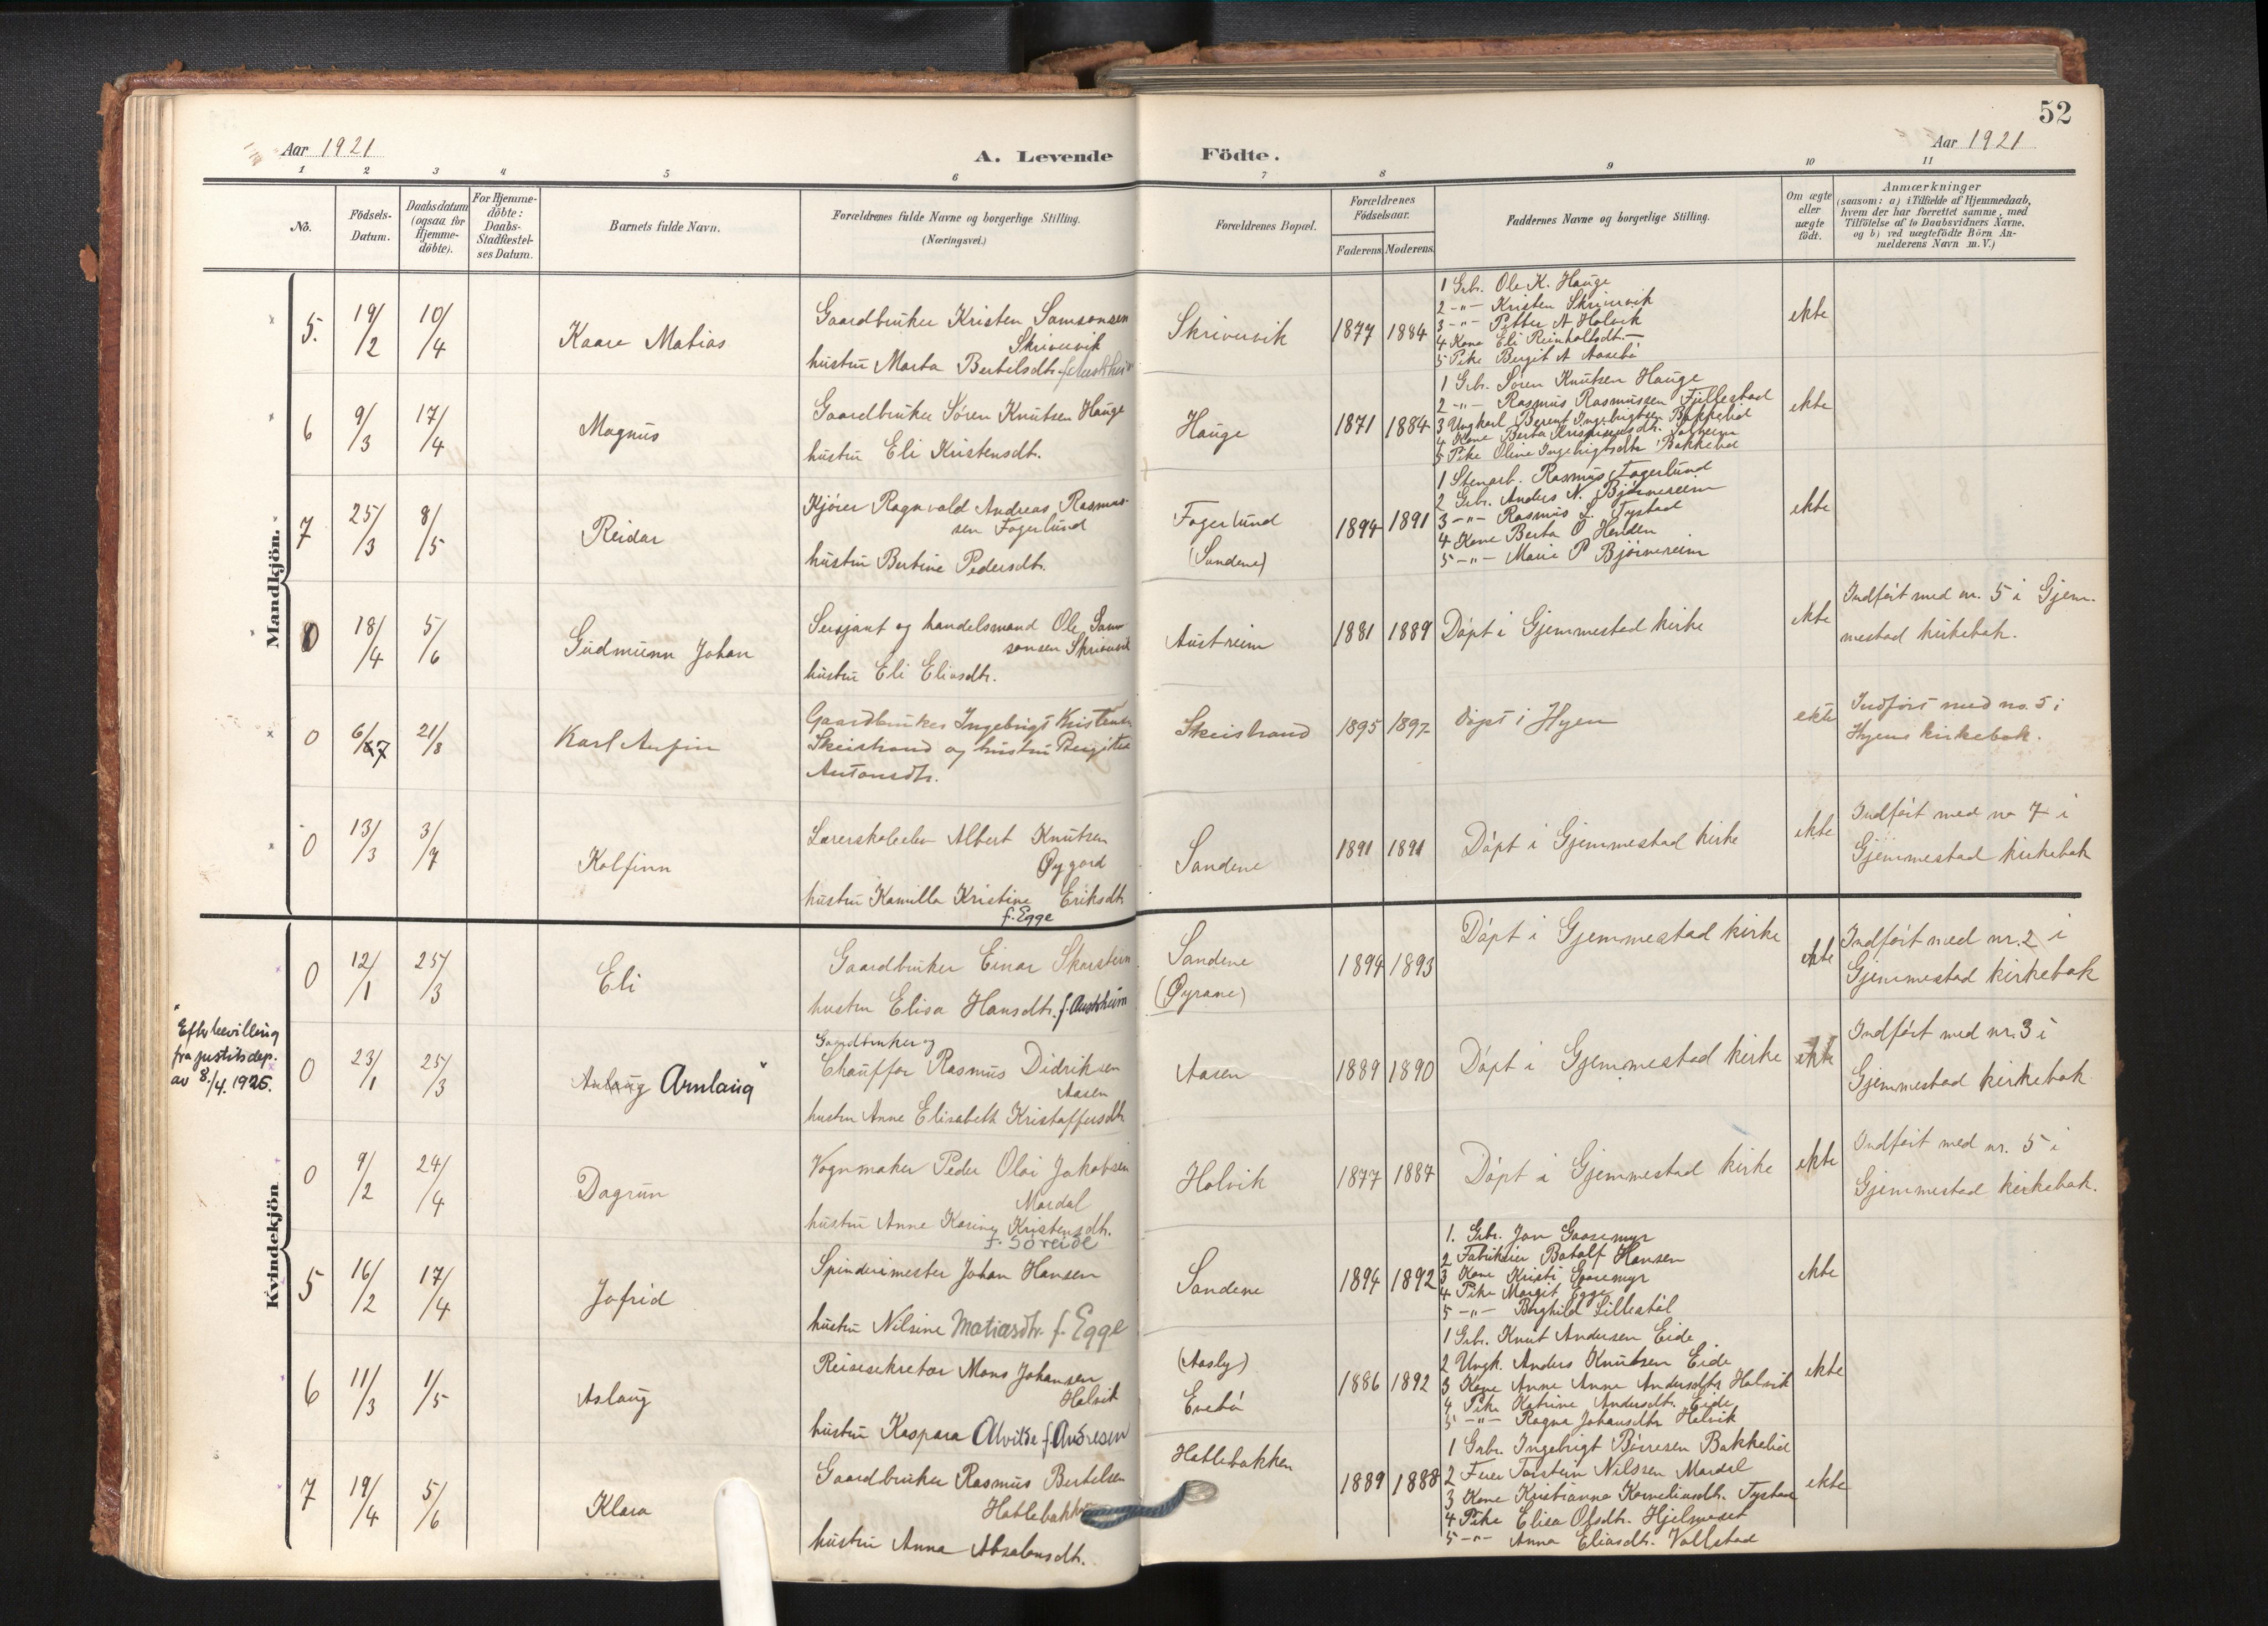 52
Aar 1921
A. Levende Födte.
Aar 1921
1 2 3 4 5 6 7 8 9 10 11
No.
Födsels-
Datum.
Daabsdatum
(ogsaa for
Hjemme-
döbte).
For Hjemme-
döbte:
Daabs-
Stadfæstel-
ses Datum.
Barnets fulde Navn.
Forældrenes fulde Navne og borgerlige Stilling.
(Næringsvei.)
Forældrenes Bopæl.
Forældrenes
Födselsaar.
Faderens Moderens
Faddernes Navne og borgerlige Stilling.
Om ægte
eller
uægte
födt.
Anmærkninger
(saasom: a) i Tilfælde af Hjemmedaab,
hvem der har forrettet samme, med
Tilföielse af to Daabsvidners Navne,
og b) ved uægtefödte Börn An-
melderens Navn m. V.)
Mandkjön.
5. 19/2 10/4 Kaare Matias
Gaardbruker Kristen Samsonsen
Skrivervik
hustru Marta Bertelsdtr.
Skrivervik 1877 1884
1 Grb. Ole K. Hauge
2 -"- Kristen Skrivervik
3 -"- Petter A Holvik
4 Kone Eli Reinholtsdt. —
5 Pike Bergit A Aasebø
ekte
6 9/3 17/4 Magnus
Gaardbruker Søren Knutsen Hauge
hustru Eli Kristensdt.
Hauge 1871 1884
1 Grb. Søren Knutsen Hauge
2 -"- Rasmus Rasmussen Fjellestad
3 Ungkarl Berent Ingebrigtsen Bakkelid
4 Kone Berta Solheim
5 Pike Oline Ingebrigtsdtr Bakkelid
ekte
7 25/3 8/5 Reidar
Kjører Ragnvald Andreas Rasmus-
sen Fagerlund
hustru Bertine Pedersdt.
Fagerlund
(Sandene)
1894 1891
1 Stenarb. Rasmus Fagerlund
2 Grb. Anders N. Bjørnereim
3 -"- Rasmus L. Tystad
4 Kone Berta O Henden
5 -"- Marie P Bjørnereim
ekte
0 18/4 5/6 Gudmunn Johan
Sersjant og handelsmand Ole Sam-
sonsen Skrivervik
hustru Eli Eliasdtr.
Austreim 1881 1889 Døpt i Gjemmestad kirke
ekte
Indført med nr. 5 i Gjem-
mestad kirkebok.
0 6/7 21/8 Karl Anfin
Gaardbruker Ingebrigt Kristens.
Skeistrand og hustru Bergitte
Antonsdtr.
Skeistrand 1895 1897 døpt i Hyen
ekte
Indført med no. 5 i
Hyens kirkebok.
0 13/3 3/7 Kolfinn
Lærerskoleelev Albert Knutsen
Øygard
hustru Kamilla Kristine Eriksdtr
f. Egge
Sandene 1891 1891 Døpt i Gjemmestad kirke
ekte
Indført med no 7 i
Gjemmestad kirkebok
Kvindekjön
0 12/1 25/3 Eli
Gaardbruker Einar Skarstein
hustru Elisa Hansdtr. f. Austrheim
Sandene
(Øyrane)
1894 1893 Døpt i Gjemmestad kirke
ekte
Indført med nr. 2 i
Gjemmestad kirkebok
"Efter bevilling
fra justitsdep.
av 8/4. 1925.
0 23/1 25/3 Aslaug Arnlaug"
Gaardbruker og
Chauffør Rasmus Didriksen
Aasen
hustru Anne Elisabeth Kristoffersdtr
Aasen 1889 1890 Døpt i Gjemmestad kirke
ekte
Indført med nr. 3 i
Gjemmestad kirkebok
0 9/2 24/4 Dagrun
Vognmaker Peder Olai Jakobsen
Mardal
hustru Anne Karine Kristensdtr.
f. Søreide
Holvik 1877 1884 Døpt i Gjemmestad kirke
ekte
Indført med nr. 5 i
Gjemmestad kirkebok.
5 16/2 17/4 Jofrid
Spinderimester Johan Hansen
hustru Nilsine Matiasdtr. f. Egge
Sandene 1894 1892
1. Grb. Jon Gaasemyr
2 Fabrikeier Botolf Hansen
3 Kone Kristi Gaasemyr
4 Pike Margit Egge
5 -"- Borghild Lillestøl
ekte
6 11/3 1/5 Aslaug
Reisesekretær Mons Johansen
Holvik
hustru Kaspara Alvilde f. Andresen
(Aasly)
Evebø
1886 1892
1 Grb. Knut Andersen Eide
2 Ungk. Anders Knutsen Eide
3 Kone Anne Anne Andersdtr Holvik
4 Pike Katrine Andersdt. Eide
5 -"- Ragna Johansdtr Holvik
ekte
7 19/4 5/6 Klara
Gaardbruker Rasmus Bertelsen
Hatlebakken
hustru Anna Absalonsdt.
Hatlebakken 1889 1888
1 Grb. Ingebrigt Børresen Bakkelid
2 Torstein Nilssen Mardal
3 Kone Kristianna Korneliusdtr. Tystad
4 Pike Elisa Olsdtr. Hjelmeset
5 -"- Anna Eliasdtr. Vallestad
ekte